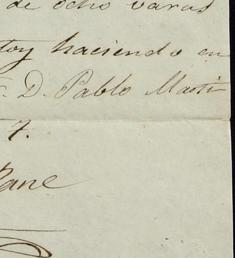 de ocho varas
toy haciendo en
D. Pablo Martin
7.